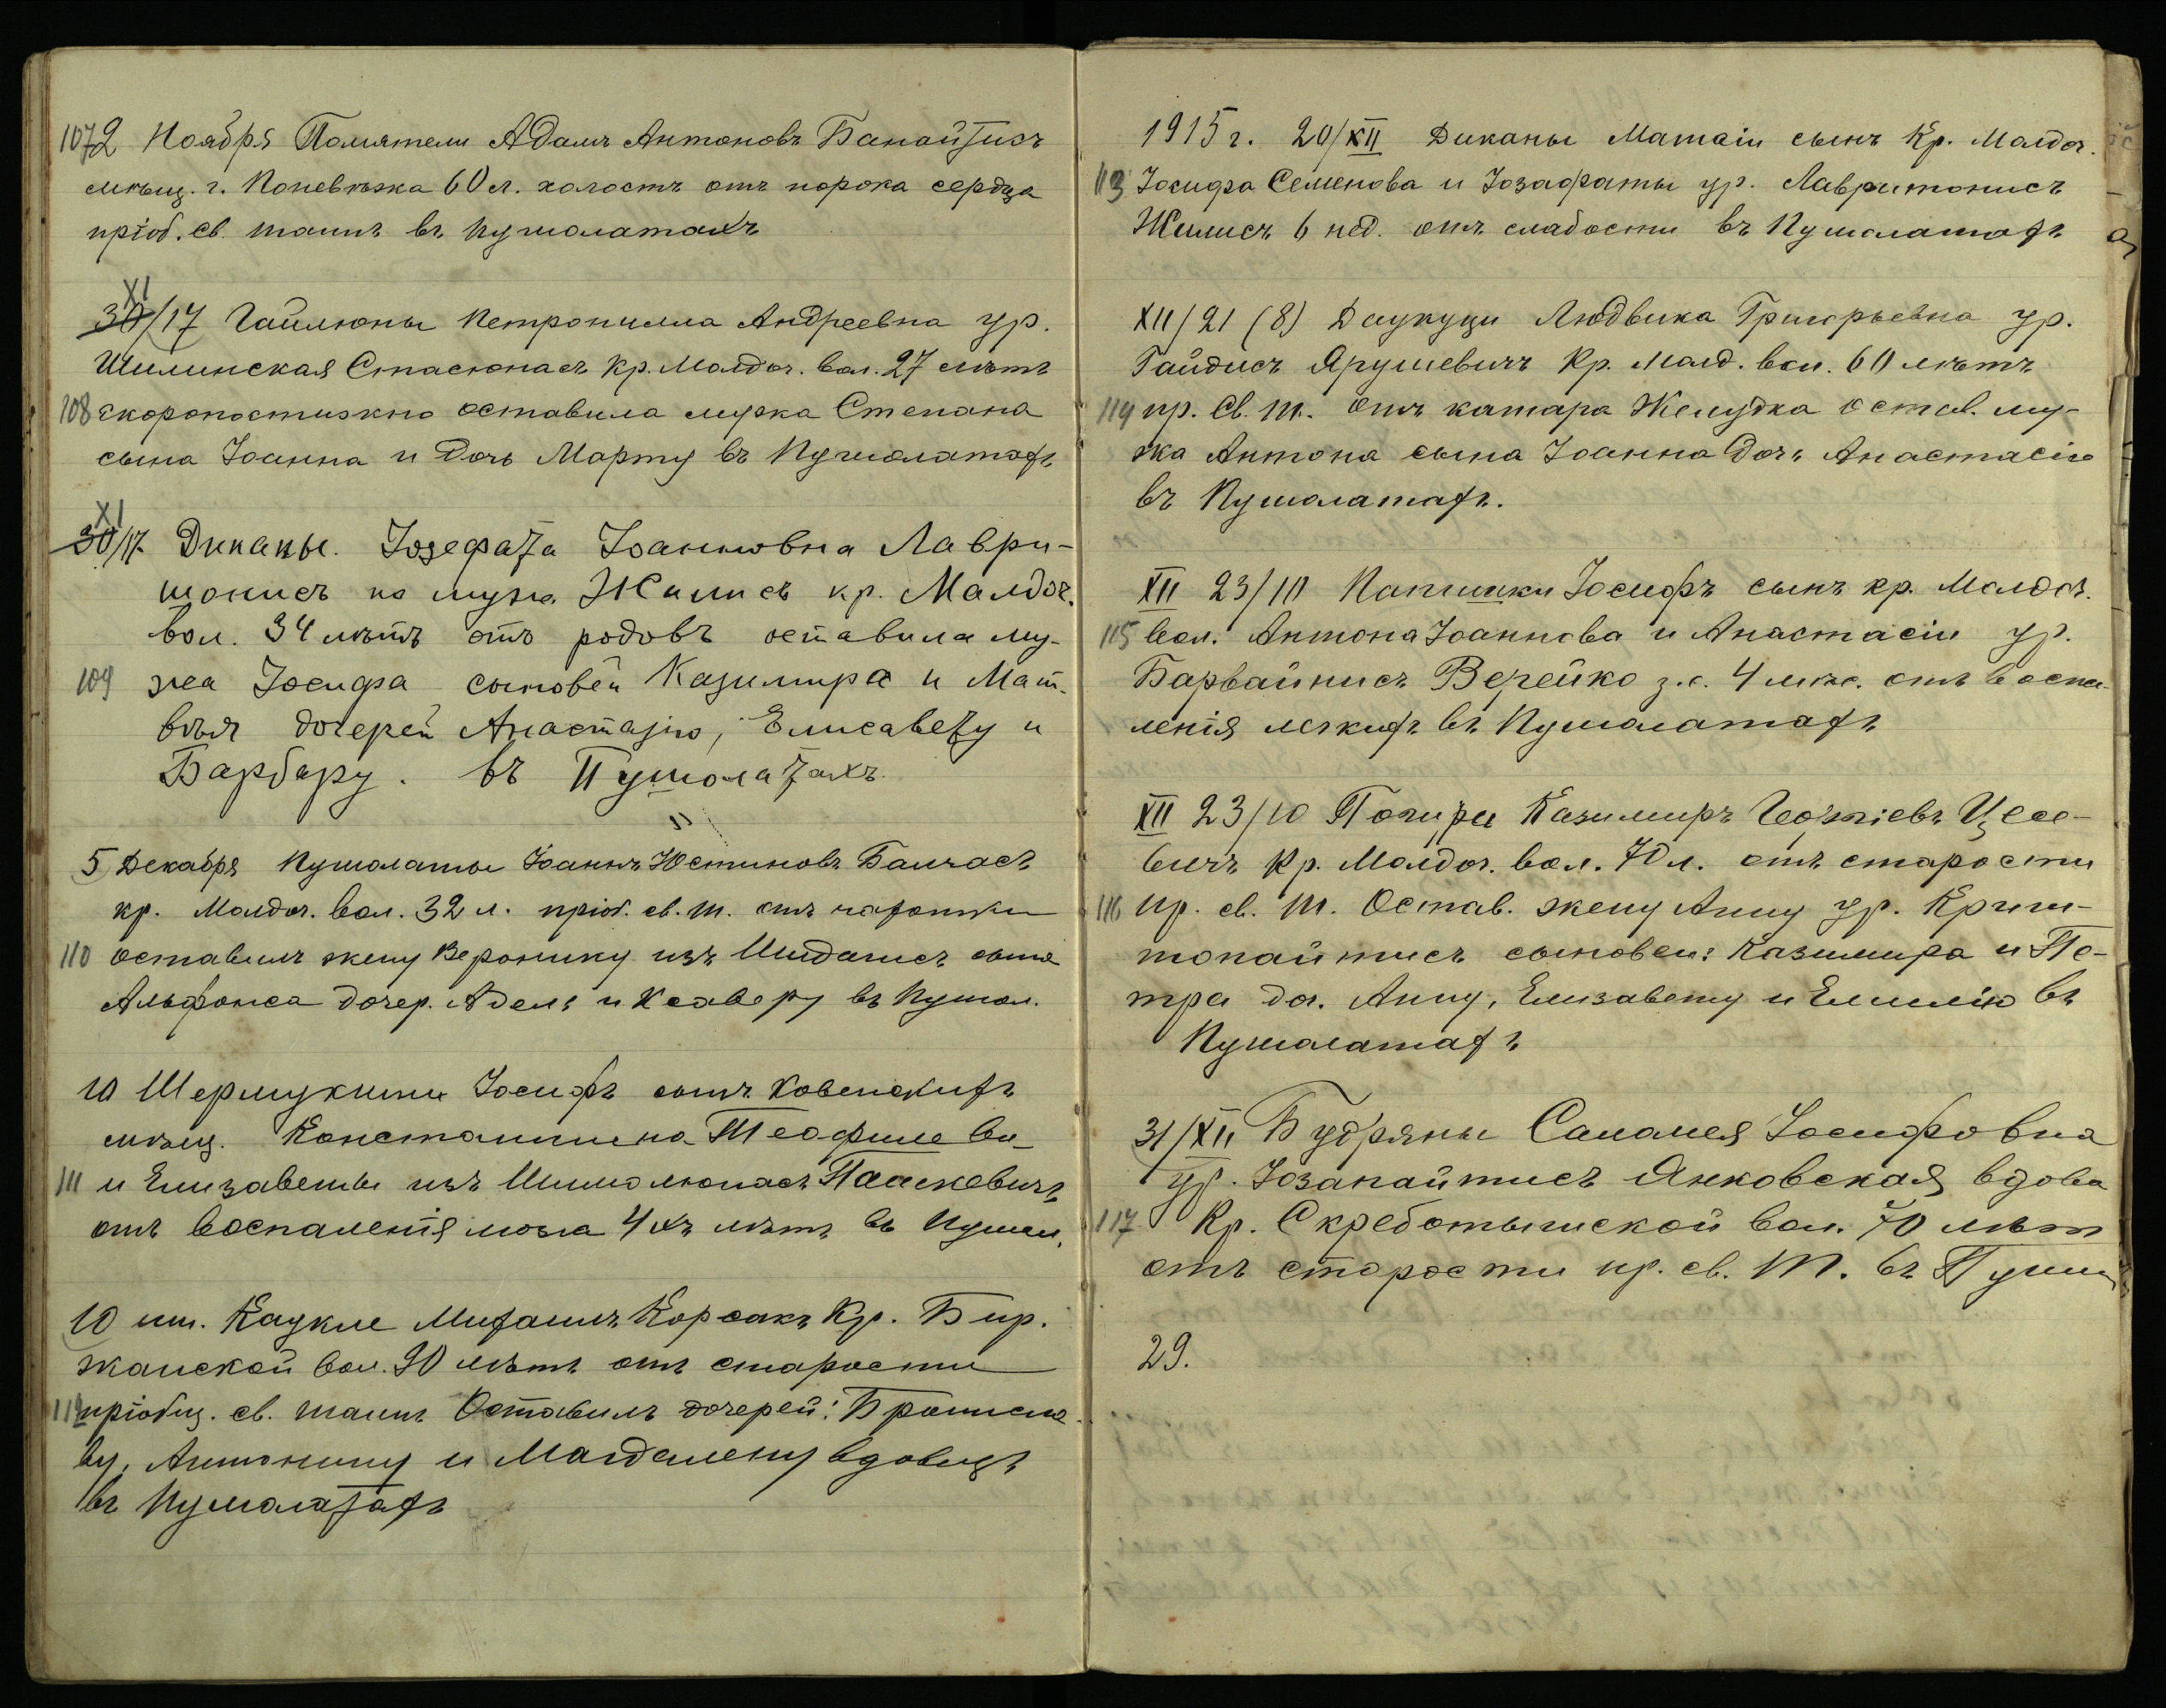 107 2 Ноября Помятели Адамъ Антоновъ Банайтисъ
мѣщ. г. Поневѣжа 60 л. холостъ отъ порока сердца
пріоб. св. таинъ въ Пушолатахъ
XI
30/17 Гайлюны Петронилла Андреевна ур.
Шилинская Стасюнасъ кр. Малдоч. вол. 27 лѣтъ
108 скоропостижно оставила мужа Степана
сына Іоанна и дочь Марту въ Пушолатахъ
XI
30/17 Диканы. Іозефата Іоанновна Лаври-
тонисъ по мужу Жилисъ кр. Малдоч.
вол. 34 лѣтъ отъ родовъ оставила му-
109 жа Іосифа сыновей Казимира и Мат-
вѣя дочерей Анастазію, Елисавету и
Барбару. въ Пушолатахъ.
5 Декабря Пушолаты Іоаннъ Юстиновъ Балчасъ
кр. Малдоч. вол. 32 л. пріоб. св. т. отъ чахотки
110 оставилъ жену Веронику изъ сына
Альфонса дочер. Адель и Ксаверу въ Пушол.
10 Шермукшни Іосифъ сынъ Ковенскихъ
мѣщ. Константина Теофиле ва
111 и Елизаветы изъ Паскевичъ
отъ воспаленія мозга 4хъ лѣтъ въ Пушол.
10 Каукле Михаилъ Корсакъ Кр. Бир-
жанской вол. 90 лѣтъ отъ старости
112 пріобщ. св. таинъ Оставилъ дочерей: Бронисла-
ву, Антонину и Магдалену вдовецъ
въ Пушолатахъ
1915 г. 20/XII Диканы Матаіи сынъ Кр. Малдоч.
113 Іосифа Семенова и Іозафаты ур. Лавритонисъ
Жилисъ 6 нед. отъ слабости въ Пушолатахъ
XII/21 (8) Даукуци Людвика Григорьевна ур.
Гайдисъ Ярушевичъ Кр. Малд. вол. 60 лѣтъ
114 пр. св. т. отъ катара желудка остав. му-
жа Антона сына Іоанна дочь Анастасію
въ Пушолатахъ.
XII 23/10 Іосифъ сынъ кр. Малдоч.
115 вол. Антона Іоаннова и Анастасіи ур.
Барвайнисъ Верейко 4 мѣс. отъ воспа-
ленія легкихъ въ Пушолатахъ
XII 23/10 Погиры Казимиръ Цесе-
вичъ кр. Малдоч. вол. 70 л. отъ старости
116 пр. св. т. Остав. жену Анну ур. Криш-
топайтисъ сыновей: Казимира и Пе-
тра доч. Анну, Елизавету и Емилію въ
Пушолатахъ
31/XII Будряны Саломея Іосифовна
ур. Іозапайтисъ Янковская вдова
117 Кр. Скреботышской вол. 70 лѣт
отъ старости пр. св. т. въ Пушол
29.